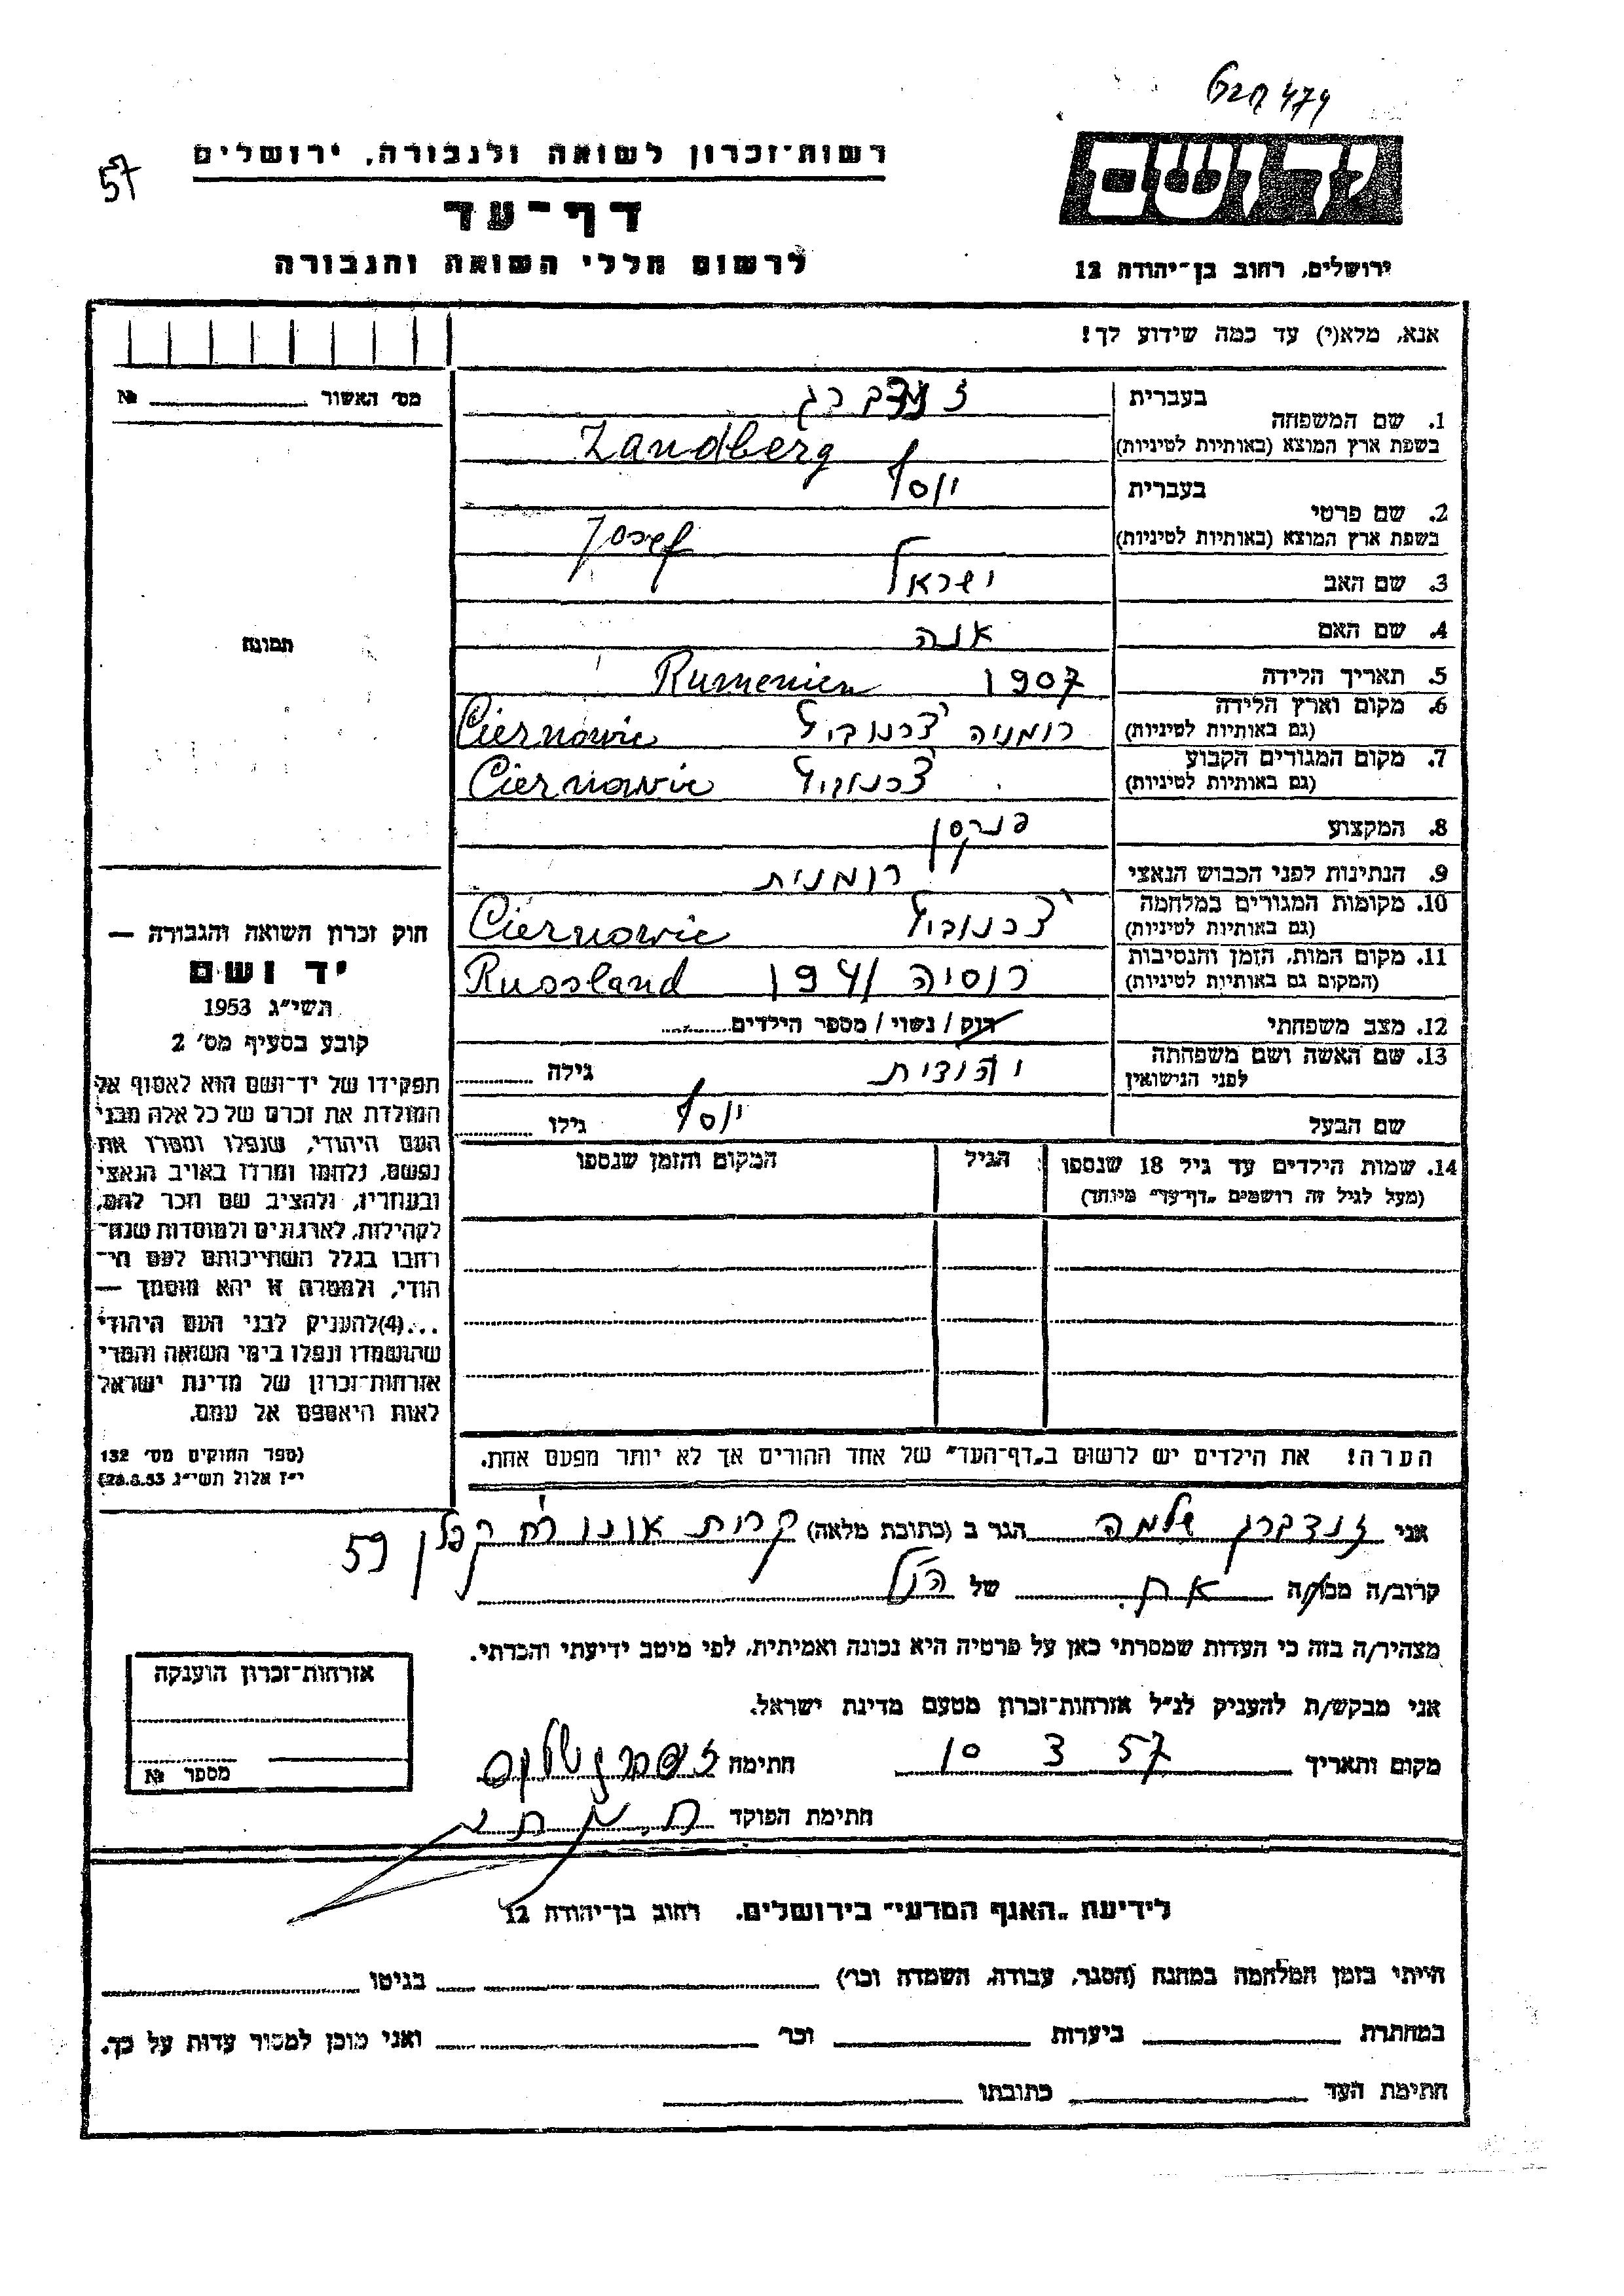 רשות־זכרון לשואה ולגבורה, ירושלים
57
דף־עד
לרשום חללי השואה והגבורה
יד ושם
ירושלים, רחוב בן־יהודה 12
אנא, מלא(י) עד כמה שידוע לך!
מס׳ האשור №
תמונה
1. שם המשפחה בעברית זנדברג
בשפת ארץ המוצא (באותיות לטיניות) Zandberg
2. שם פרטי בעברית יוסף
בשפת ארץ המוצא (באותיות לטיניות) Josef
3. שם האב ישראל
4. שם האם אנה
5. תאריך הלידה 1907 Rumenien
6. מקום וארץ הלידה (גם באותיות לטיניות) רומניה Ciernowic
7. מקום המגורים הקבוע (גם באותיות לטיניות) Ciernowic
8. המקצוע
9. הנתינות לפני הכבוש הנאצי רומנית
10. מקומות המגורים במלחמה (גם באותיות לטיניות) Ciernowic
11. מקום המות, הזמן והנסיבות (המקום גם באותיות לטיניות) רוסיה 1941 Russland
12. מצב משפחתי רוק / נשוי / מספר הילדים
13. שם האשה ושם משפחתה לפני הנישואין יהודית גילה
שם הבעל יוסף גילו
14. שמות הילדים עד גיל 18 שנספו
(מעל לגיל זה רושמים „דף־עד״ מיוחד)
הגיל
המקום והזמן שנספו
הערה! את הילדים יש לרשום ב„דף־העד״ של אחד ההורים אך לא יותר מפעם אחת.
חוק זכרון השואה והגבורה —
יד ושם
תשי״ג 1953
קובע בסעיף מס׳ 2
תפקידו של יד־ושם הוא לאסוף אל
המולדת את זכרם של כל אלה מבני
העם היהודי, שנפלו ומסרו את
נפשם, נלחמו ומרדו באויב הנאצי
ובעוזריו, ולהציב שם וזכר להם,
לקהילות, לארגונים ולמוסדות שנח־
רבו בגלל השתייכותם לעם הי־
הודי, ולמטרה זו יהא מוסמך —
...(4) להעניק לבני העם היהודי
שהושמדו ונפלו בימי השואה והמרי
אזרחות־זכרון של מדינת ישראל
לאות היאספם אל עמם.
(ספר החוקים מס׳ 132
י״ז אלול תשי״ג 28.8.53)
אני זנדברג שלמה הגר ב (כתובת מלאה) קרית אונו קפלן 59
קרוב/ה מכר/ה אח של הנ״ל
מצהיר/ה בזה כי העדות שמסרתי כאן על פרטיה היא נכונה ואמיתית, לפי מיטב ידיעתי והכרתי.
אני מבקש/ת להעניק לנ״ל אזרחות־זכרון מטעם מדינת ישראל.
מקום ותאריך 10 3 57 חתימה זנדברג שלמה
חתימת הפוקד
אזרחות־זכרון הוענקה
מספר №
לידיעת „האגף המדעי״ בירושלים, רחוב בן־יהודה 12
הייתי בזמן המלחמה במחנה (הסגר, עבודה, השמדה וכו׳) בגיטו
במחתרת ביערות וכו׳ ואני מוכן למסור עדות על כך.
חתימת העד כתובתו